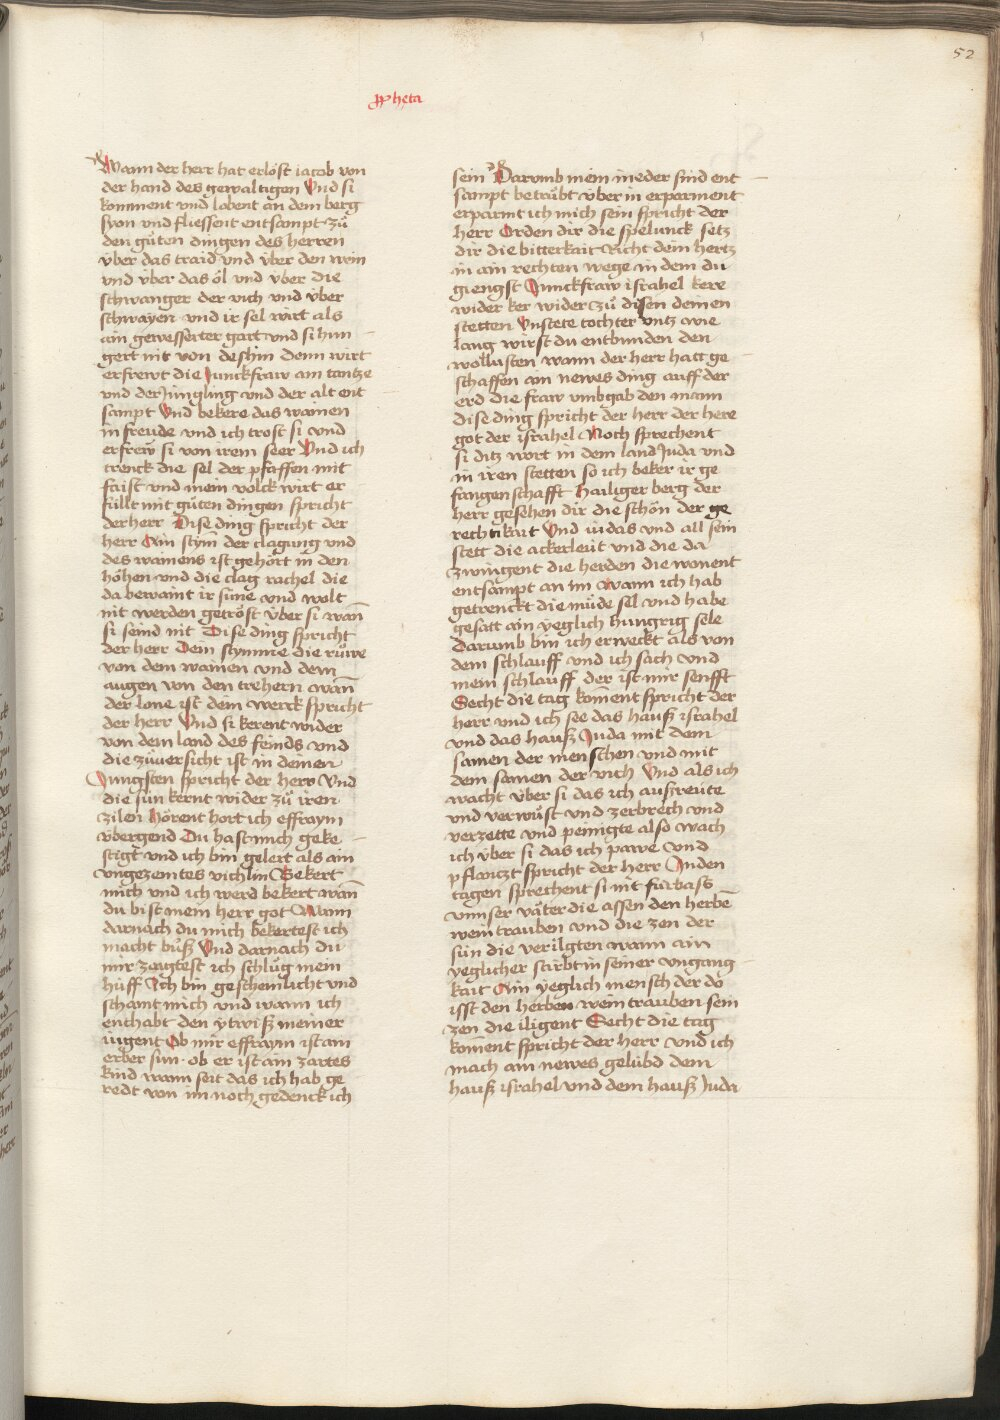 52
ꝓheta
Wann der herr hat erlöst iacob von
der hand des gewaltigen Vnd si
komment vnd lobent an dem berg
syon vnd fliessent entsampt zů
den gůten dingen des herren
v̈ber das traid vnd v̈ber den wein
vnd v̈ber das öl vnd v̈ber die
schwanger der vich vnd v̈ber
schwayen vnd ir sel wirt als
ain gewesserter gart vnd si hun
gert nit von deshin denn wirt
erfrewt die Junckfraw am tantze
vnd der Jüngling vnd der alt ent
sampt Vnd bekere das wainen
in freude vnd ich trost si vnd
erfrew si von irem seer Vnd ich
trenck die sel der pfaffen mit
faist vnd mein volck wirt er
füllt mit gůten dingen spricht
der herr Dise ding spricht der
herr Ain stym̄ der clagung vnd
des wainens ist gehört in den
höhen vnd die clag rachel die
da bewaint ir süne vnd wolt
nit werden getröst v̈ber si wan̄
si seind nit Dise ding spricht
der herr Dein stymme die růwe
von dem wainen vnd dein
augen von den trehern wan̄
der lone ist dem werck spricht
der herr Vnd si kerent wider
von dem land des feinds vnd
die zůuersicht ist in deinen
Jungsten spricht der herr Vnd
die sün kernt wider zů iren
zilen Hörent hort ich effraym
v̈bergend Du hast mich geke
stigt vnd ich bin gelert als ain
vngezemtes vichlin Bekert
mich vnd ich werd bekert wan̄
du bist mein herr got Wann
darnach du mich bekertest ich
macht bůß Vnd darnach du
mir zaigtest ich schlůg mein
hüff Ich bin gescheinlicht vnd
schamt mich vnd wann ich
enthabt den ytwiß meiner
iugent Ob mir effraym ist ain
erber sun · ob er ist ain zartes
kind wann seit das ich hab ge
redt von im noch gedenck ich
sein Darumb mein ineder sind ent
sampt betrůbt v̈ber in erparment
erparmt ich mich sein spricht der
herr Orden dir die spelunck setz
dir die bitterkait Richt dein hertz
in ain rechten wege in dem du
giengst Junckfraw israhel kere
wider ker wider zů disen deinen
stetten Vnstete tochter vntz wie
lang wirst du entbunden den
wollusten wann der herr hatt ge
schaffen ain newes ding auff der
erd die fraw vmbgab den mann
dise ding spricht der herr der here
got der israhel Noch sprechent
si ditz wort in dem land Juda vnd
in iren stetten so ich beker ir ge
fangenschafft Hailiger berg der
herr gesehen dir die schön der ge
rechtikait Vnd iudas vnd all sein
stett die ackerleüt vnd die da
zwingent die herden die wonent
entsampt an im Wann ich hab
getrenckt die müde sel vnd habe
gesatt ain yeglich hungrig sele
Darumb bin ich erweckt als von
dem schlauff vnd ich sach vnd
mein schlauff der ist mir senfft
Secht die tag kom̄ent spricht der
herr vnd ich see das hauß israhel
vnd das hauß Juda mit dem
samen der menschen vnd mit
dem samen der vich Vnd als ich
wacht v̈ber si das ich außreute
vnd verwůst vnd zerbrech vnd
verzette vnd peinigte also wach
ich v̈ber si das ich pawe vnd
pflantzt spricht der herr In den
tagen sprechent si nit fürbass
vnnser väter die assen den herbē
weintrauben vnd die zen der
sün die verilgten wann ain
yeglicher stirbt in seiner vngang
kait Ain yeglich mensch der do
isst den herben weintrauben sein
zen die iligent Secht die tag
kom̄ent spricht der herr vnd ich
mach ain newes gelübd dem
hauß israhel vnd dem hauß Juda